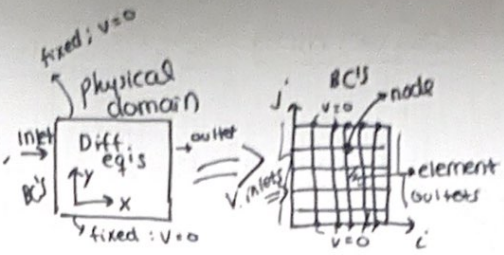 fixed; v=0
physical
domain
Inlet
Diff
eq's
outlet
BC's
Y
X
fixed : v=0
BC's
j
v=0
node
V. inlets
element
outlets
v=0
i